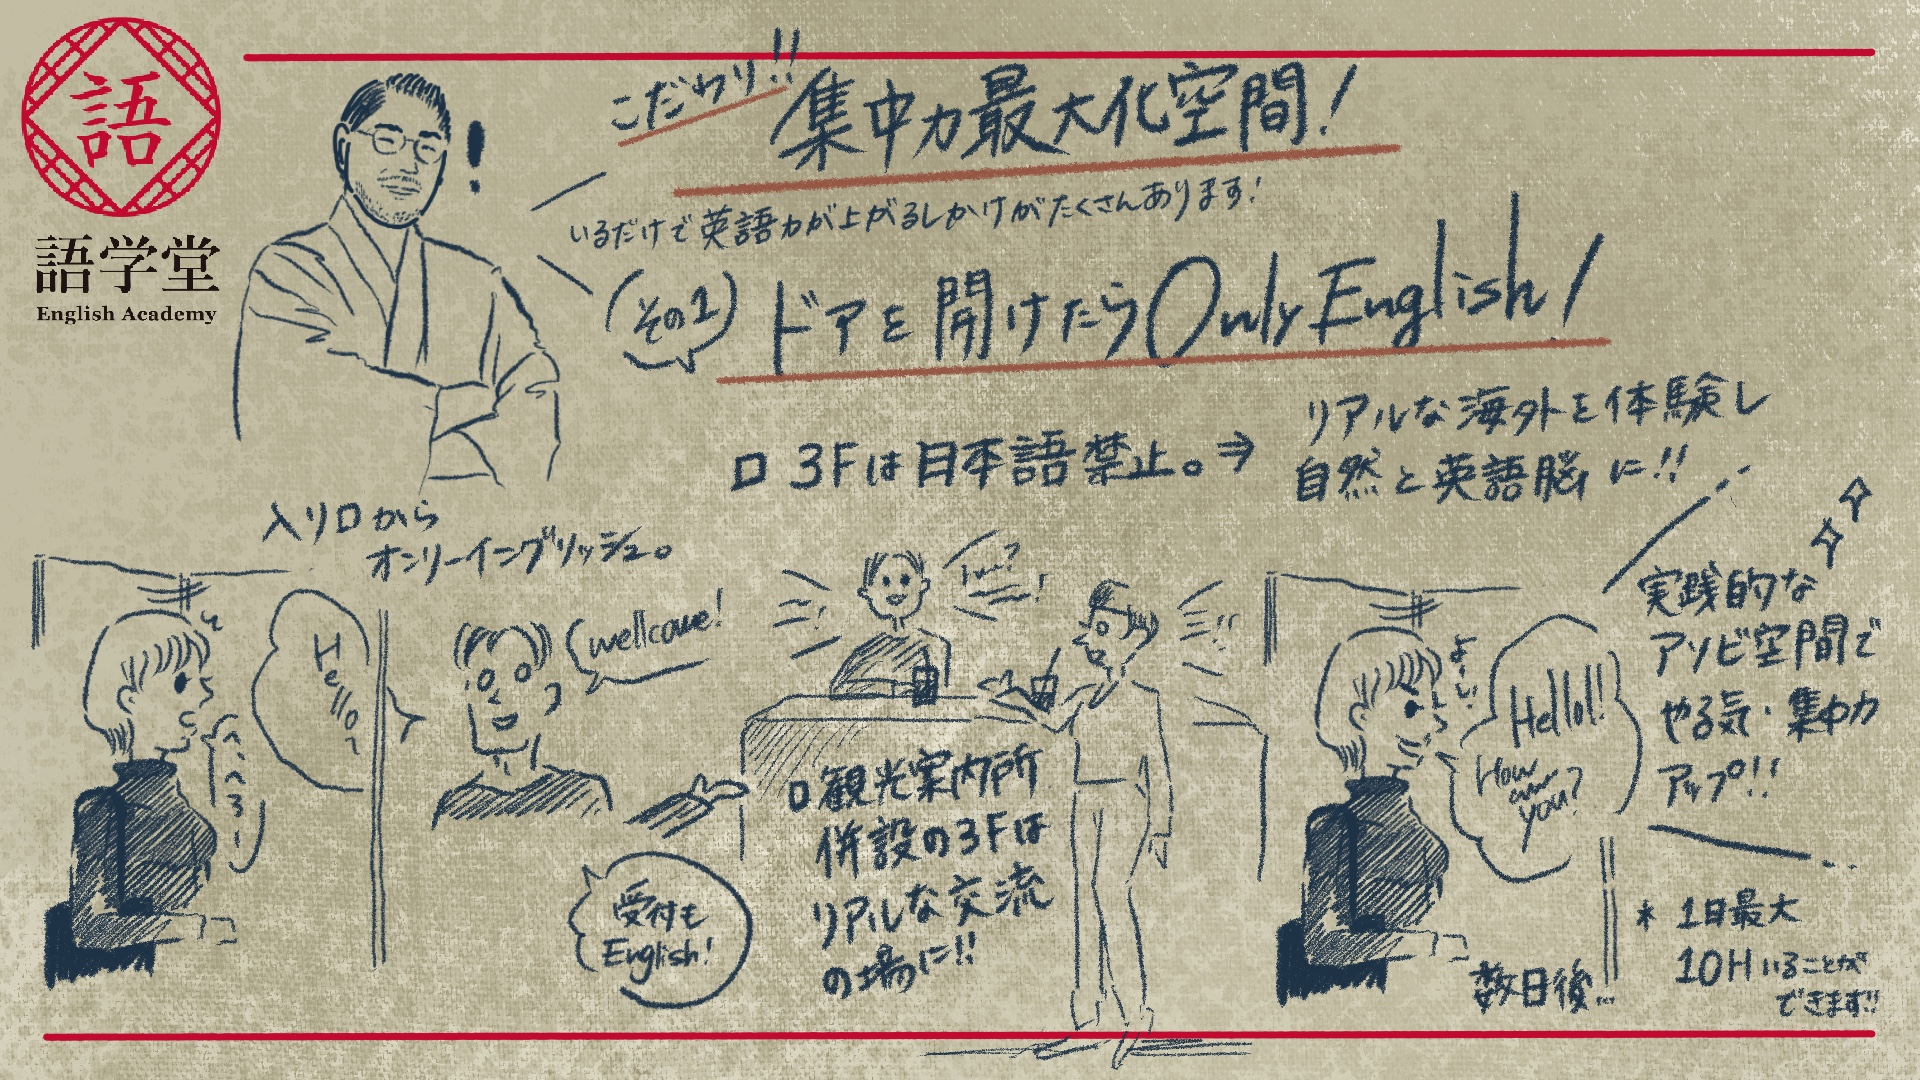 語
語学堂
English Academy
こだわり!!
集中力最大化空間!
いるだけで英語力が上がるしかけがたくさんあります!
(その1)
ドアを開けたらOnly English!
ロ 3Fは日本語禁止。⇒
リアルな海外を体験し
自然と英語脳に!!
入り口から
オンリーイングリッシュ。
Hello~
へ、へろー
wellcome!
受付も
English!
ロ観光案内所
併設の3Fは
リアルな交流
の場に!!
よーし
Hello!!
How
are
you?
数日後…
実践的な
アソビ空間で
やる気・集中力
アップ!!
* 1日最大
10Hいることが
できます!!